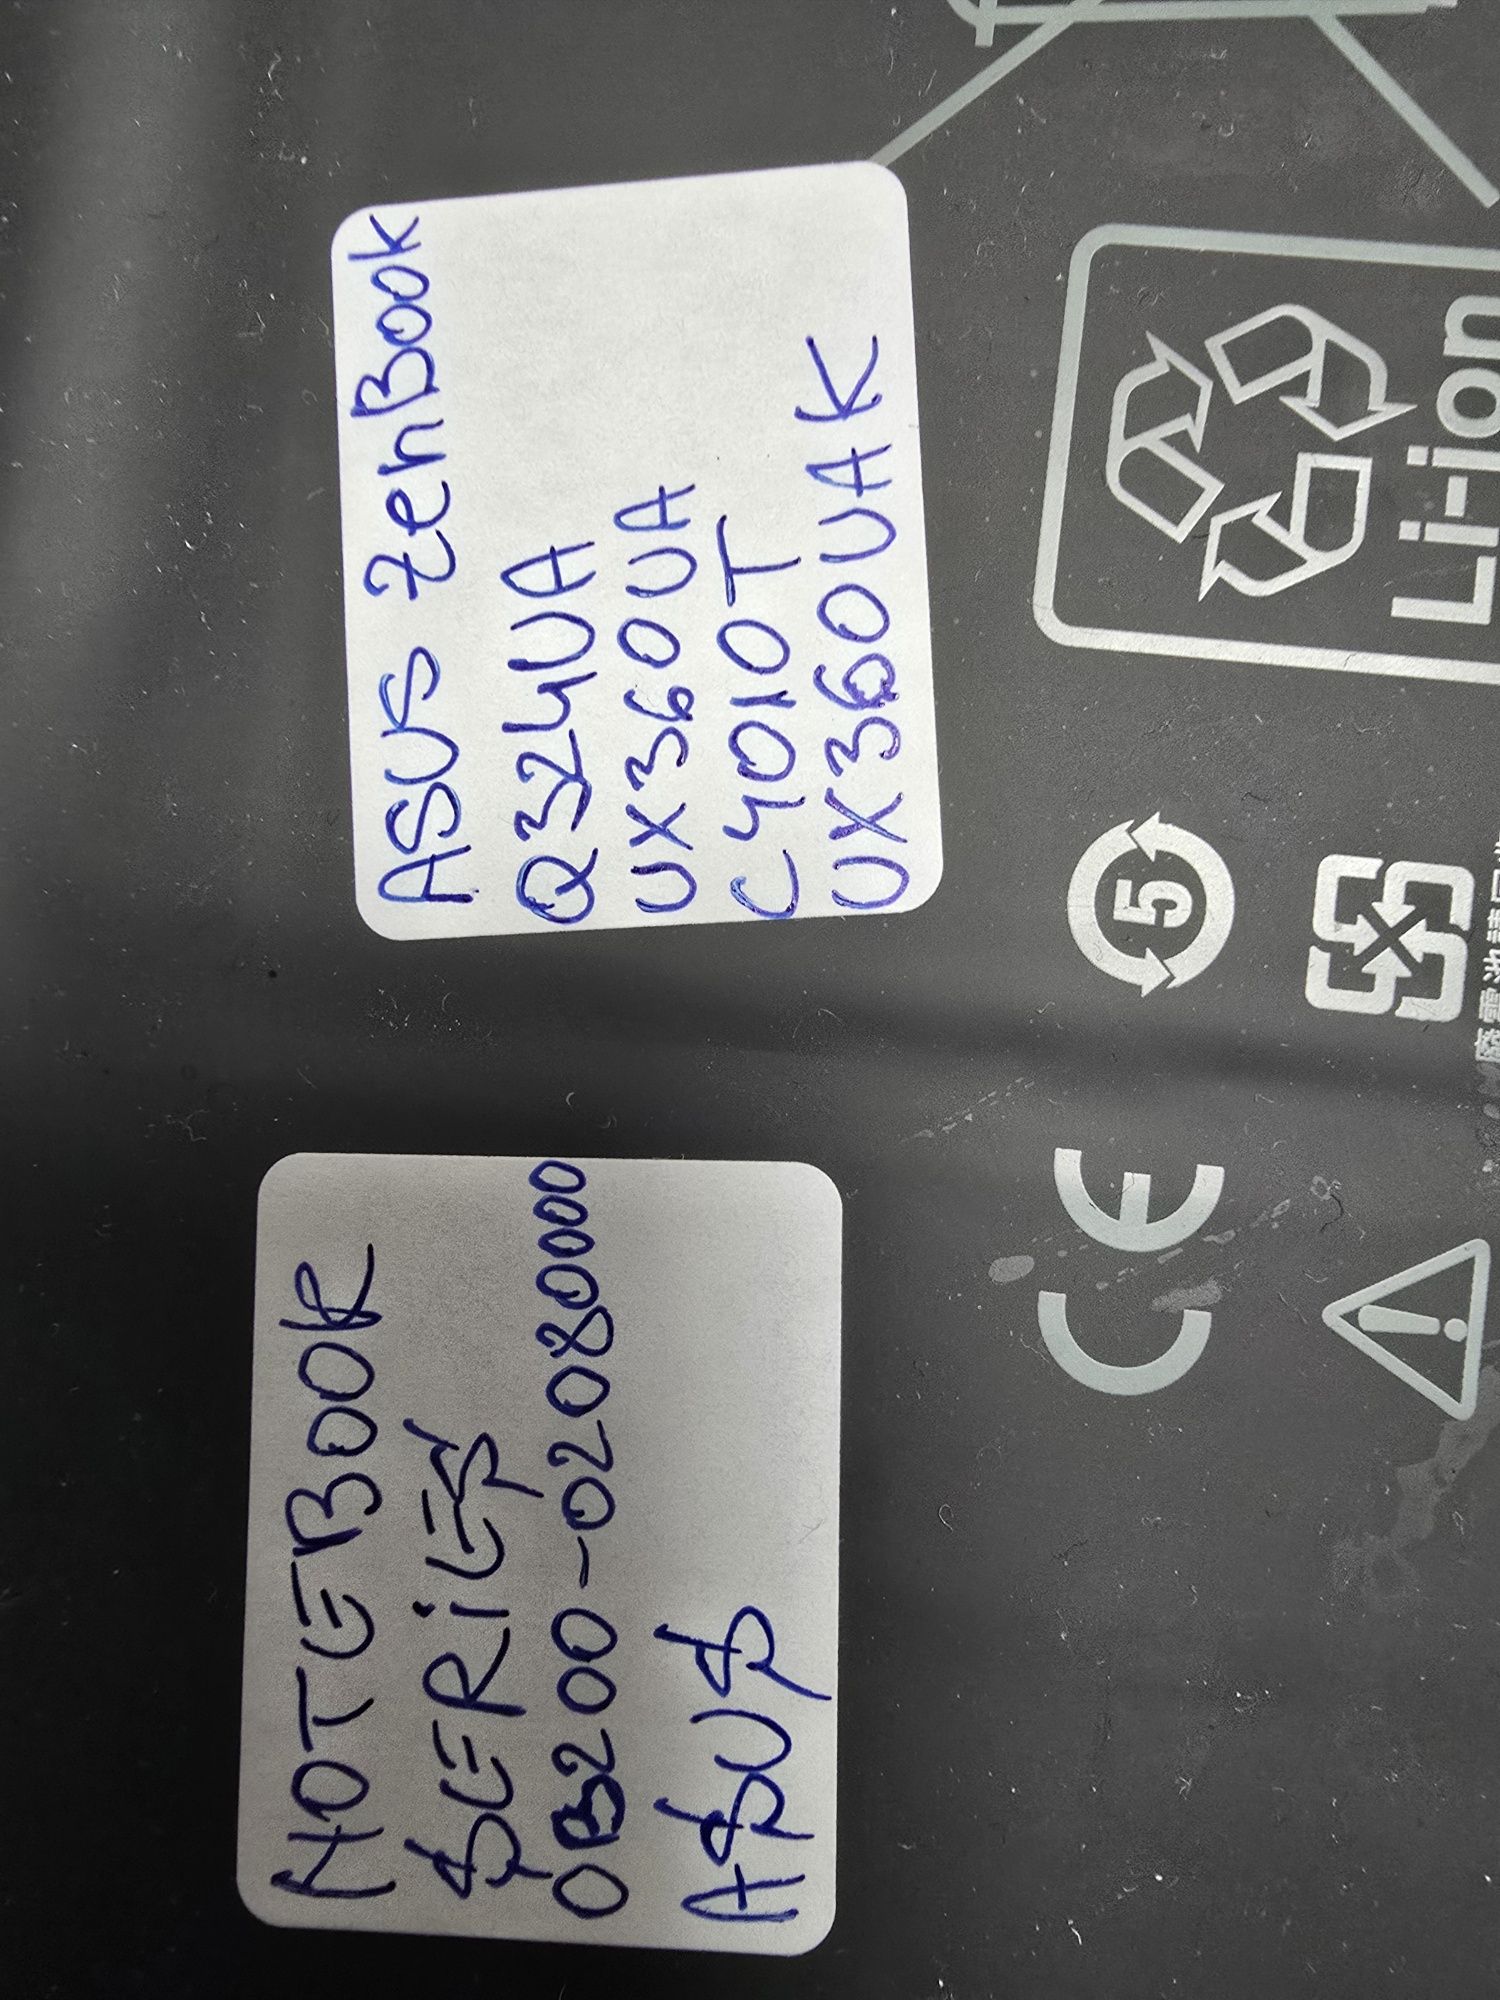 NOTEBOOK
SERiES
0B200-02080000
ASUS
ASUS ZenBook
Q324UA
UX360UA
C4010T
UX360UAK
CE
5
Li-ion